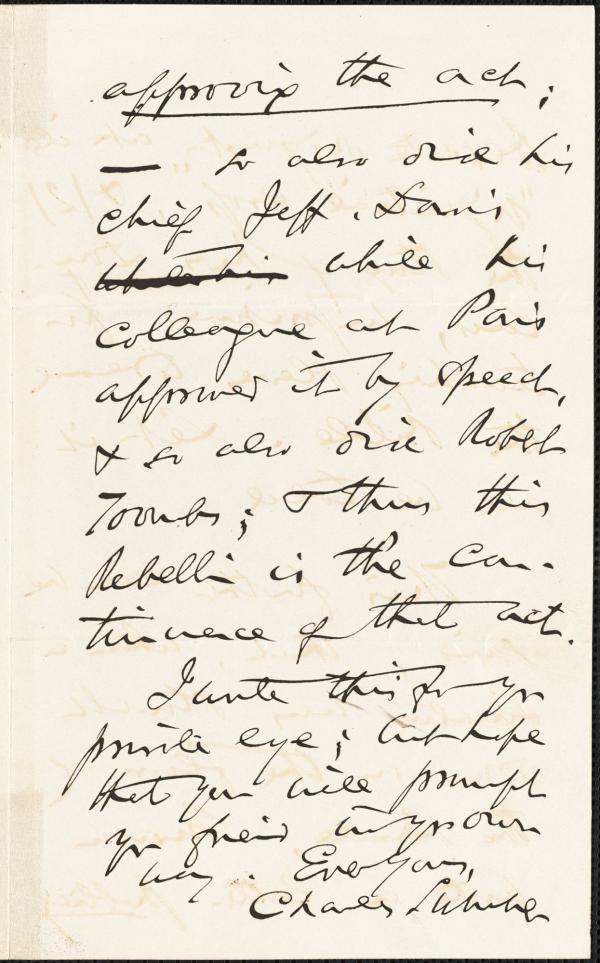 approving the act;
— so also did his
chief Jeff. Davis
while his
colleague at Paris
approved it by speech,
& so also did Robert
Toombs; & thus this
Rebellion is the con-
tinuance of that act.
I write this for yr
private eye; but hope
that you will prompt
yr friend in yr own
way. Ever Yours,
Charles Sumner